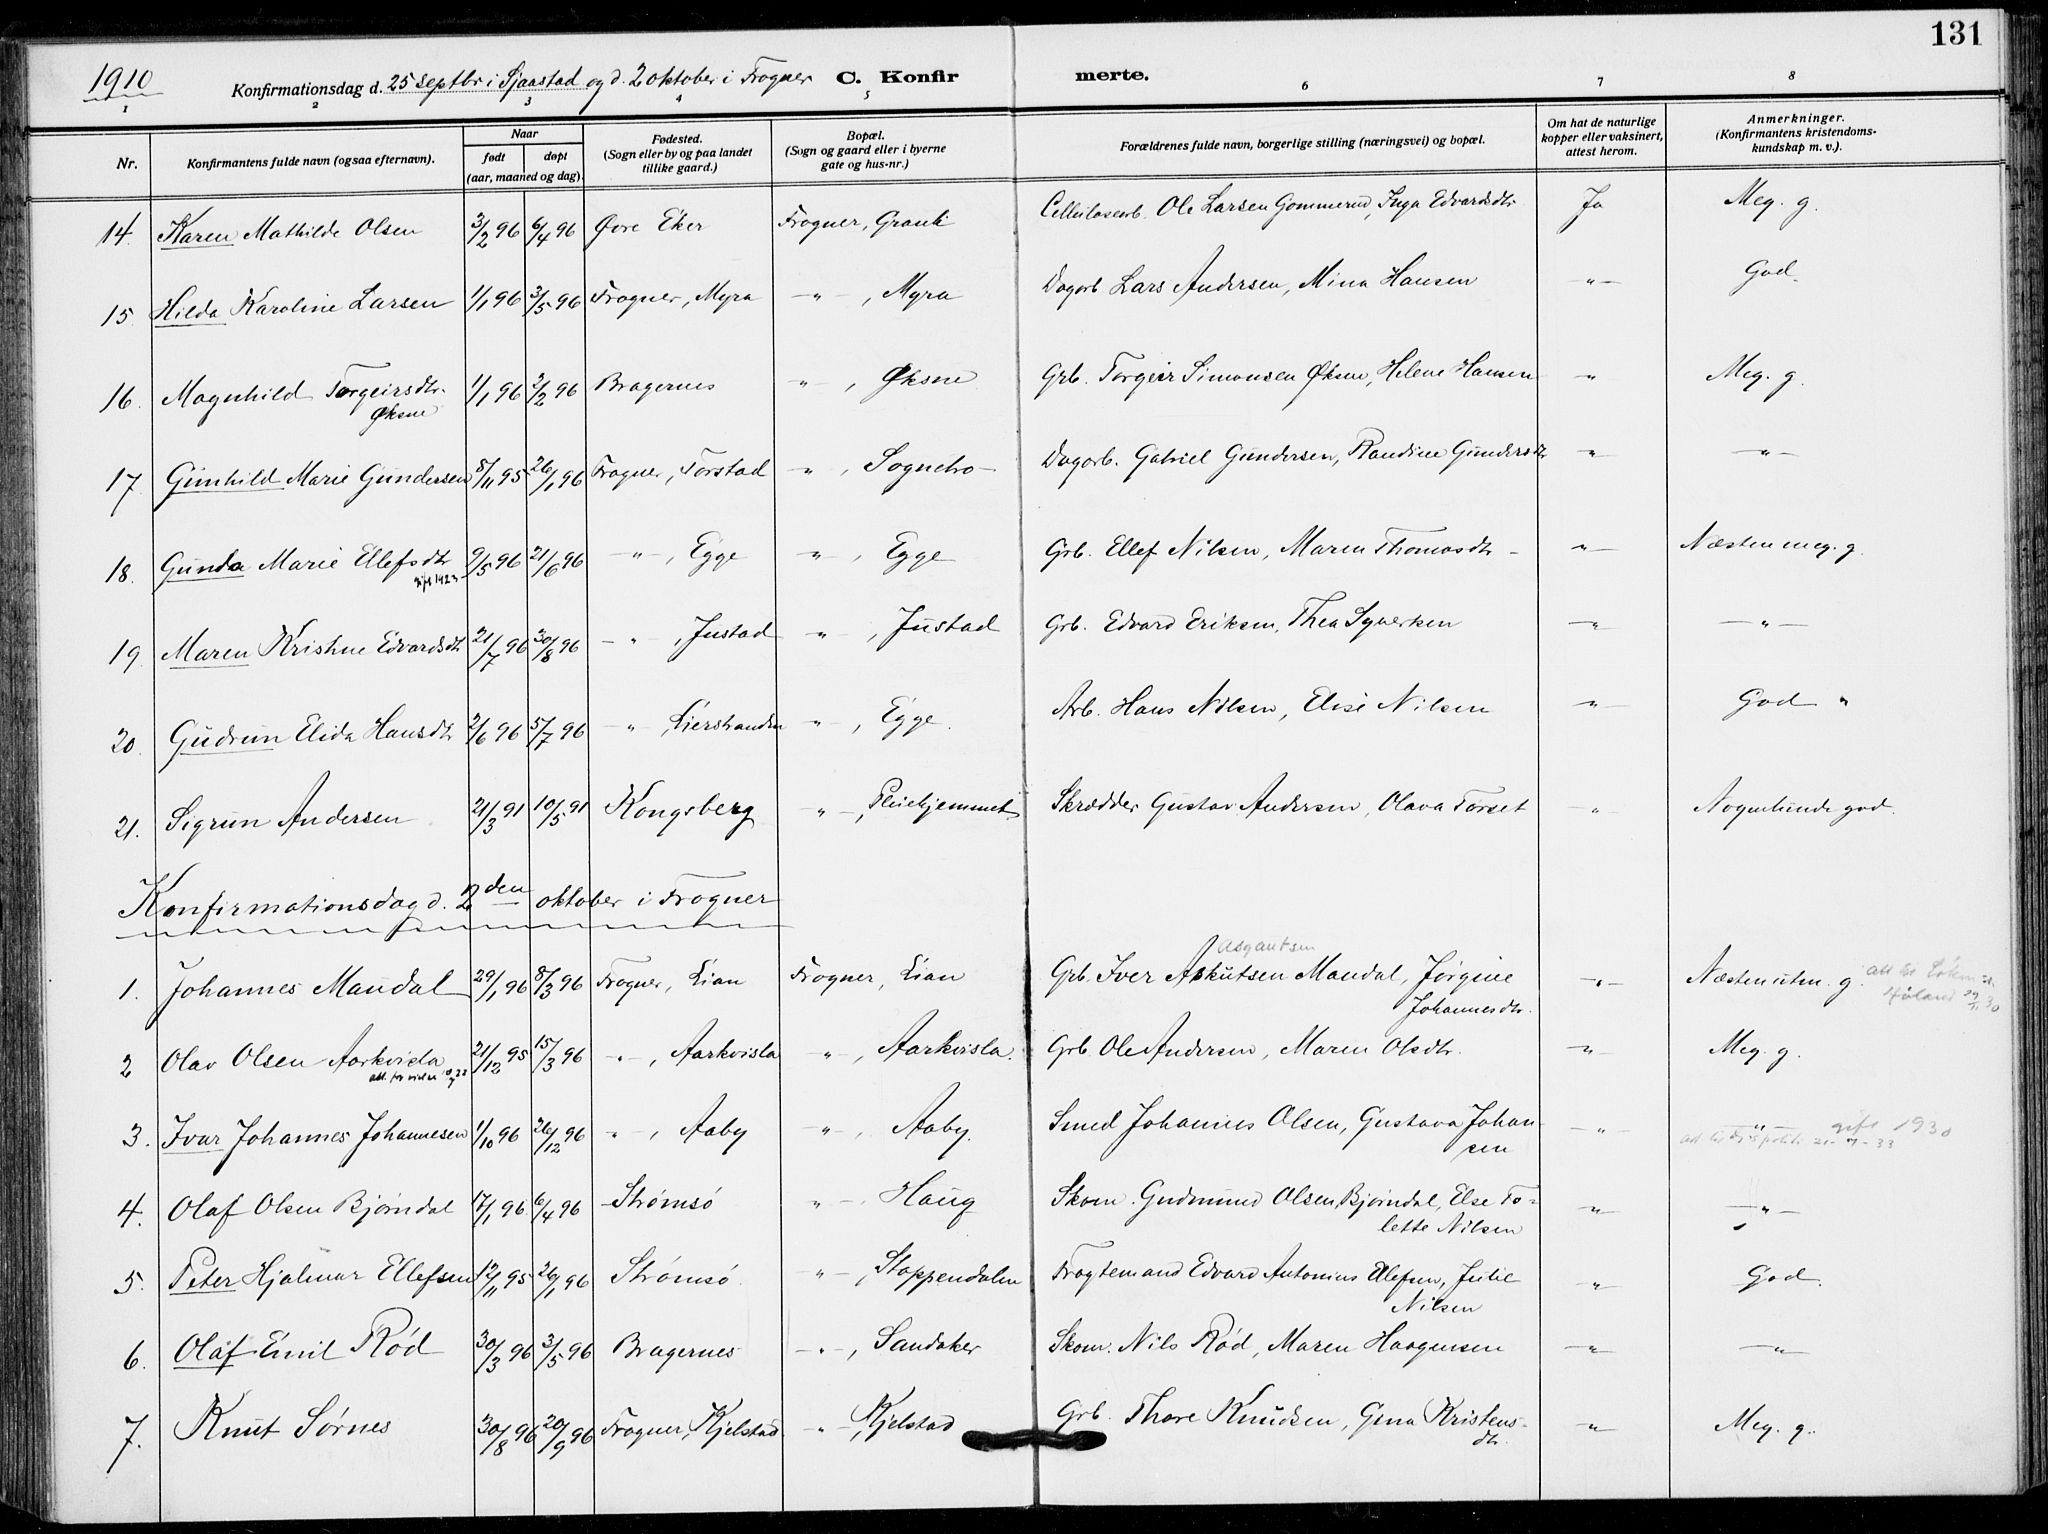 131
1910 Konfirmationsdag d. 25 septbr i Sjaastad og d. 2 oktober i Frogner C. Konfirmerte.
1 2 3 4 5 6 7 8
Nr. Konfirmantens fulde navn (ogsaa efternavn). Naar født døpt (aar, maaned og dag). Fødested. (Sogn eller by og paa landet tillike gaard.) Bopæl. (Sogn og gaard eller i byerne gate og hus-nr.) Forældrenes fulde navn, borgerlige stilling (næringsvei) og bopæl. Om hat de naturlige kopper eller vaksinert, attest herom. Anmerkninger. (Konfirmantens kristendoms-kundskap m. v.).
14. Karen Mathilde Olsen 3/2 96 6/4 96 Øvre Eker Frogner, Grauli Cellulosearb. Ole Larsen Gommerud, Inga Edvardsdtr Ja Meg. g.
15. Hilda Karoline Larsen 1/1 96 3/5 96 Frogner, Myra -"-, Myra Dagarb. Lars Andersen, Mina Hansen -"- God.
16. Magnhild Torgeirsdtr. Øksne 1/1 96 2/2 96 Bragernes -"-, Øksne Grb. Torgeir Simonsen Øksne, Helene Hansen -"- Meg. g.
17. Gunhild Marie Gundersen 8/11 95 26/1 96 Frogner, Torstad -"-, Sognebo Dagarb. Gabriel Gundersen, Randine Gundersdtr -"- -"-
18. Gunda Marie Ellefsdtr gift 1923 9/5 96 21/6 96 -"-, Egge -"-, Egge Grb. Ellef Nilsen, Maren Thomasdtr -"- Næsten meg. g.
19. Maren Kristine Edvardsdtr 21/7 96 30/8 96 -"-, Justad -"-, Justad Grb. Edvard Eriksen, Thea Syversen -"- -"-
20. Gudrun Elida Hansdtr 2/6 96 5/7 96 -"-, Lierstranden -"-, Egge. Arb. Hans Nilsen, Elise Nilsen -"- God "
21. Sigrun Andersen 21/3 91 10/5 91 Kongsberg -"-, Pleiehjemmet Skrædder Gustav Andersen, Olava Torset -"- Nogenlunde god.
Konfirmationsdag d. 2den oktober i Frogner
1. Johannes Maudal 29/1 96 8/3 96 Frogner, Lian Frogner, Lian Grb. Iver Askutsen Maudal, Jørgine Johannesdtr. -"- Næsten utm. g.
Asgautsen
2 Olav Olsen Aarkvisla 21/12 95 15/3 96 -"-, Aarkvisla -"-, Aarkvisla. Grb. Ole Andersen, Maren Olsdtr. -"- Meg. g.
3. Ivar Johannes Johannesen 1/10 96 26/12 96 -"-, Aaby -"-, Aaby. Smed Johannes Olsen, Gustava Johansen -"- -"- gift 1930
4. Olaf Olsen Bjørndal 17/1 96 6/4 96 Strømsø -"-, Haug Skom. Gudmund Olsen Bjørndal, Else Tolette Nilsen -"- -"-
5. Peter Hjalmar Ellefsen 12/11 95 26/1 96 Strømsø -"-, Stoppendalen Fragtemand Edvard Antonius Ellefsen, Julie Nilsen -"- God.
6. Olaf Emil Rød 30/3 96 3/5 96 Bragernes -"-, Sandaker Skom. Nils Rød, Maren Haagensen -"- -"-
7. Knut Sørnes 30/8 96 20/9 96 Frogner, Kjelstad -"-, Kjelstad Grb. Thore Knudsen, Gina Kristensdtr. -"- Meg. g.